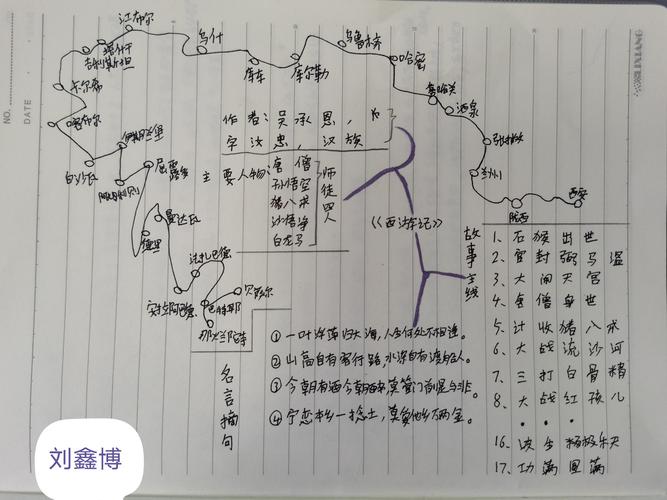 NO.
DATE
江布尔
乌什
乌鲁木齐
哈密
塔什干
吉利斯坦
库车
库尔勒
嘉哈关
酒泉
卡尔希
喀布尔
作者:吴承恩,
字汝忠,汉族
张掖
伊斯兰堡
白沙瓦
主要人物:唐僧
孙悟空
猪八戒
沙悟净
白龙马
师徒四人
兰州
陇西
西安
曼达瓦
德里
《西游记》
故事主线
1、石猴出世
2、官封弼马温
3、大闹天宫
4、唐僧身世
5、计收猪八戒
6、大战流沙河
7、三打白骨精
8、大战红孩儿
• • •
17、功满圆满
巴特那
那兰陀寺
名言摘句
①一叶浮萍归大海,人生何处不相逢。
②山高自有客行路,水深自有渡船人。
③今朝有酒今朝醉,莫管门前是与非。
④宁恋本乡一捻土,莫爱他乡万两金。
刘鑫博